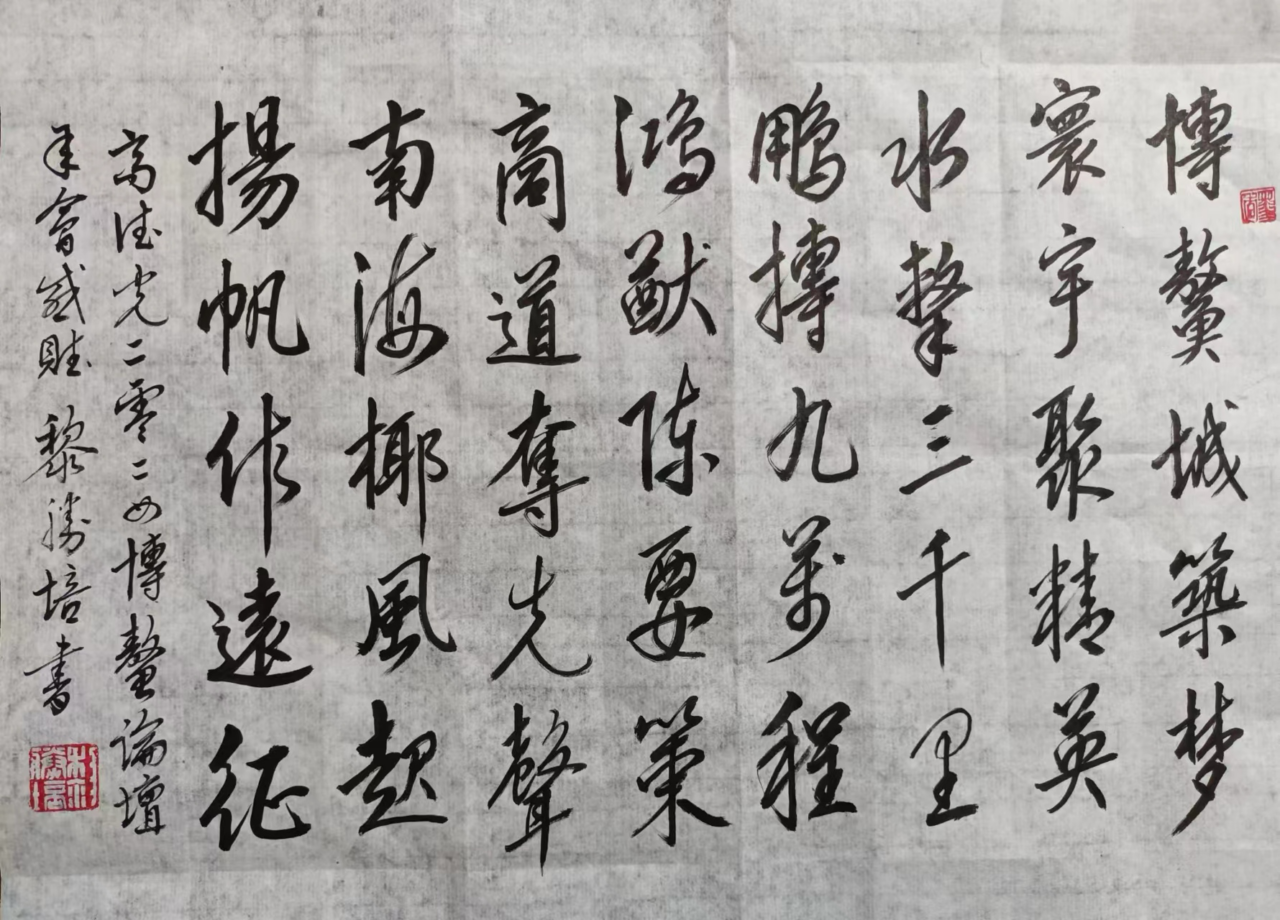 博鳌城築梦
寰宇聚精英
水擊三千里
鹏摶九萬程
鸿猷陈要策
商道奪先聲
南海椰風起
揚帆作遠征
高德光二零二四博鳌論壇
年會感賦 黎勝培書